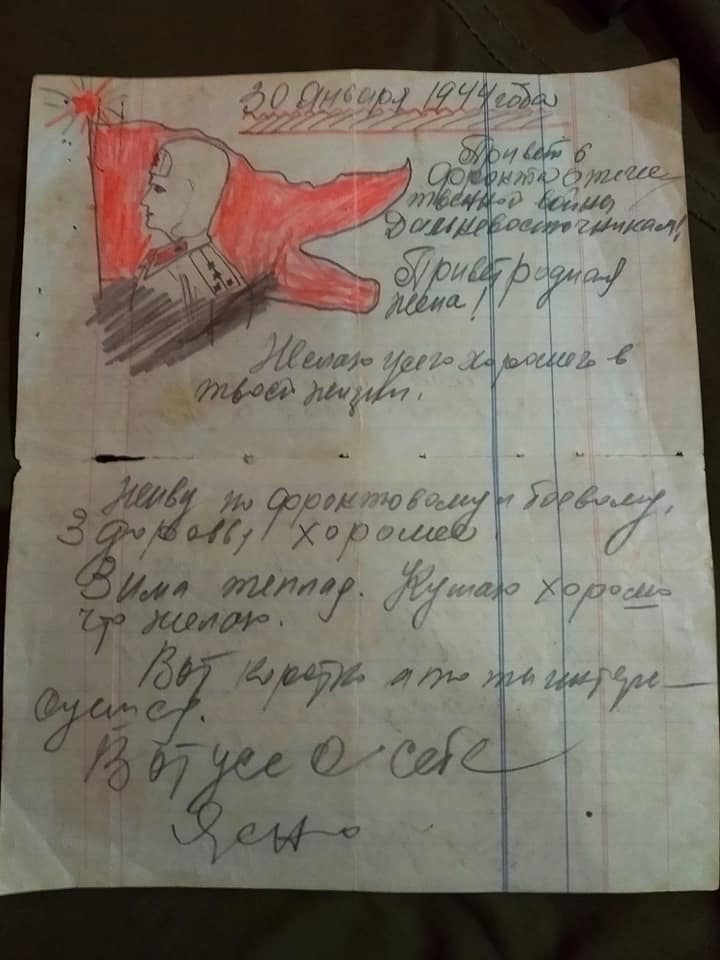 30 Января 1944 года
Привет с
фронта отече-
ственной войны
Дальневосточникам!
Привет родная
жена!
Желаю усего хорошего в
твоей жизни.
Живу по фронтовому и боевому,
Здоровьу хорошее.
Зима теплая. Кушаю хорошо
что желаю.
Вот коротко а то ты интере-
суешся.
Вот усе о себе
Ясно